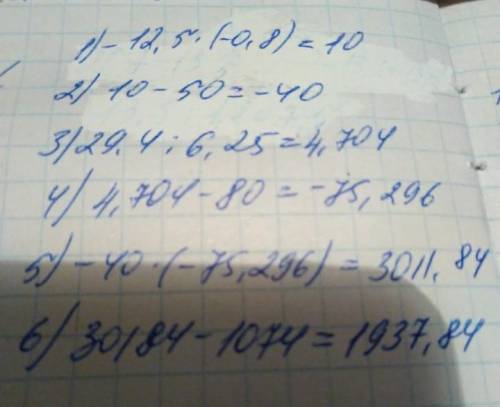 1) -12,5·(-0,8)=10
2) 10-50=-40
3) 29,4:6,25=4,704
4) 4,704-80=-75,296
5) -40·(-75,296)=3011,84
6) 30184-1074=1937,84